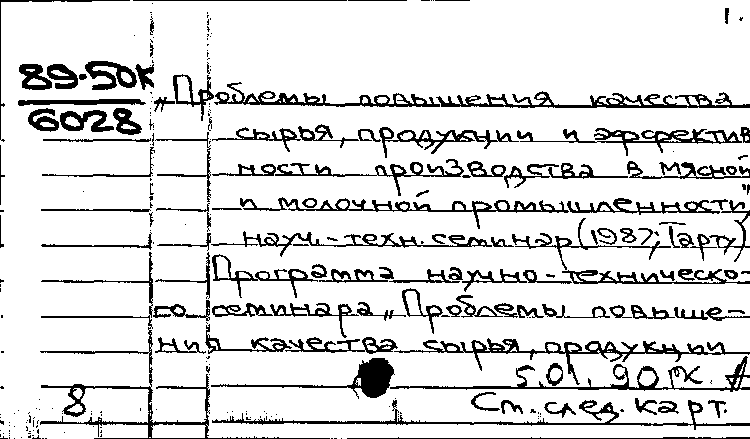 1.
89-50к
6028
„Проблемы повышения качества
сырья, продукции и эффектив
ности производства в мясной
и молочной промышленности"
науч.-техн. семинар (1987; Тарту)
Программа научно-техническо-
го семинара „Проблемы повыше-
ния качества сырья, продукции
5.01.90
8
См. след. карт.